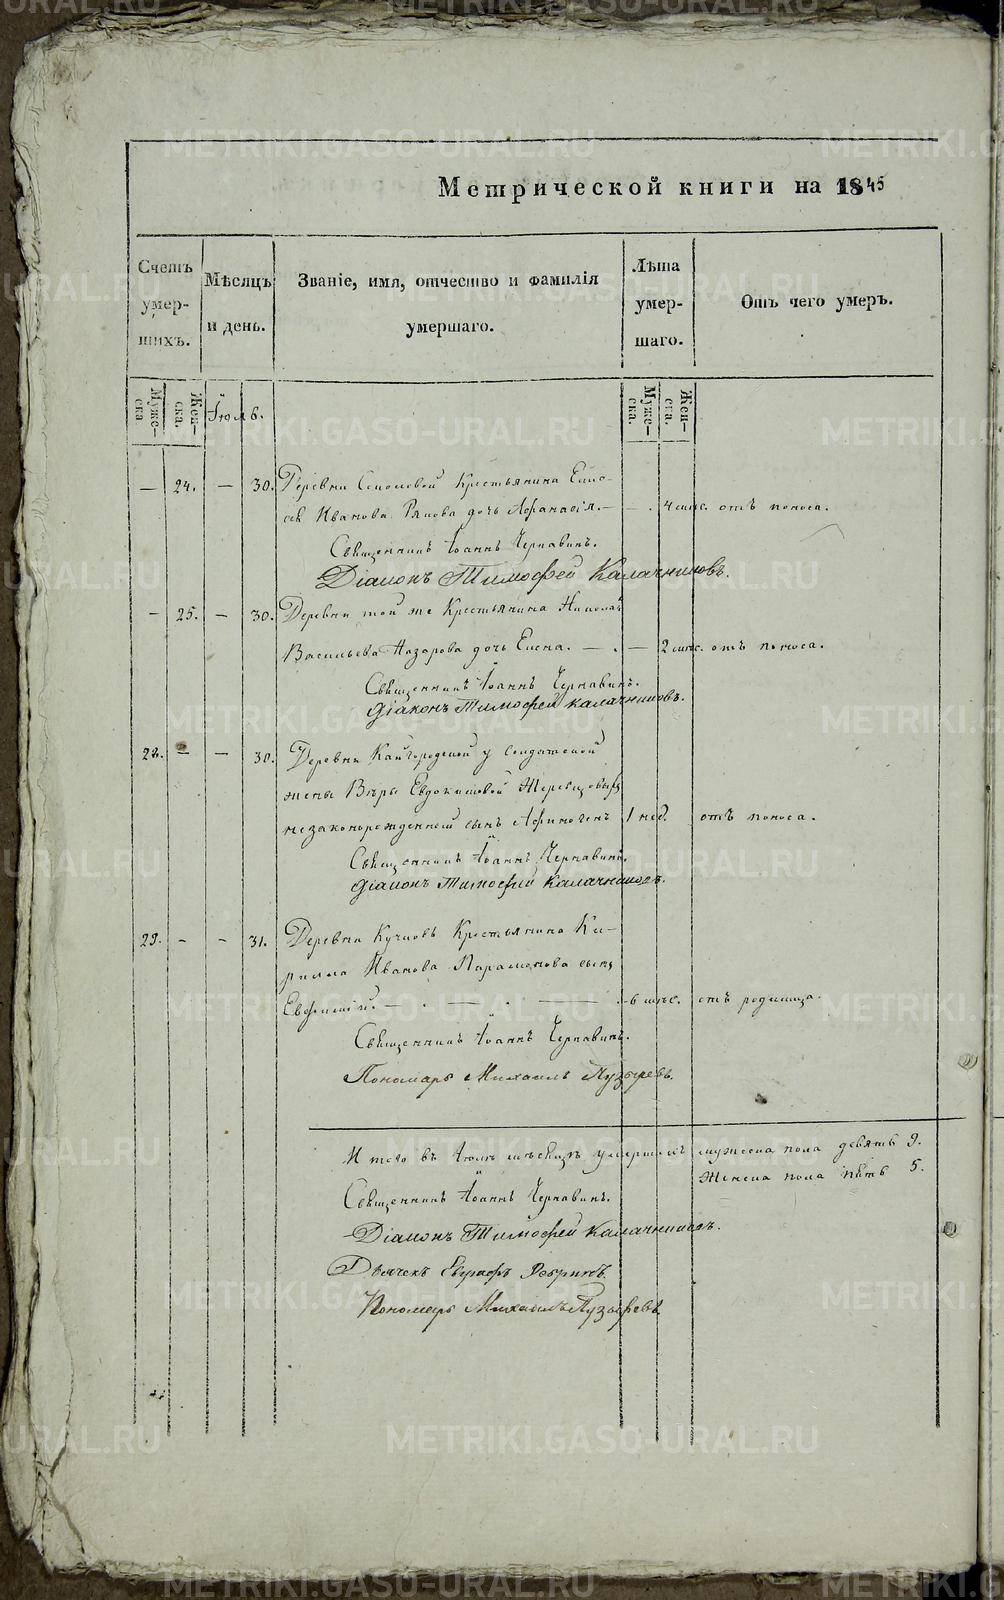 Метрической книги на 1845
Счетъ умершихъ.
Мѣсяцъ и день.
Званіе, имя, отчество и фамилія умершаго.
Лѣта умершаго.
Отъ чего умеръ.
Муже-ска
Жен-ска.
Іюль.
Муже-ска.
Жен-ска.
— 24. — 30. Деревни Крестьянина Елис-
ея Иванова дочь Афанасія. — 4 мис. отъ поноса.
Священникъ Іоаннъ Чернавинъ.
Діаконъ Тимофей Калачниковъ.
— 25. — 30. Деревни той же Крестьянина Николая
Васильева Назарова дочь Елена. — . — 2 мис. отъ поноса.
Священникъ Іоаннъ Чернавинъ.
Діаконъ Тимофей Калачниковъ.
22. — — 30. Деревни Кайгородской у солдатской
жены Вѣры Евдокимовой
незаконорожденный сынъ Афиногенъ 1 нед. отъ поноса.
Священникъ Іоаннъ Чернавинъ.
Діаконъ Тимофей Калачниковъ.
23. - - 31. Деревни Крестьянина Ки-
рилла Иванова Парамонова сынъ
Евфимій. — . — . — . 6 мис. отъ родимца.
Священникъ Іоаннъ Чернавинъ.
Пономарь Михаилъ Пузыревъ.
Итого въ Іюлѣ мѣсяцѣ умершихъ мужеска пола девять 9.
Женска пола пять 5.
Священникъ Іоаннъ Чернавинъ.
Діаконъ Тимофей Калачниковъ.
Дьячекъ Евграфъ
Пономарь Михаилъ Пузыревъ
METRIKI.GASO-URAL.RU